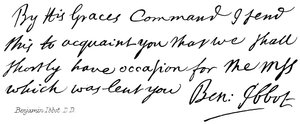 By His Graces Command I send
this to acquaint you that we shall
shortly have occasion for the Mss
which was lent you Ben: Ibbot
Benjamin Ibbot D.D.